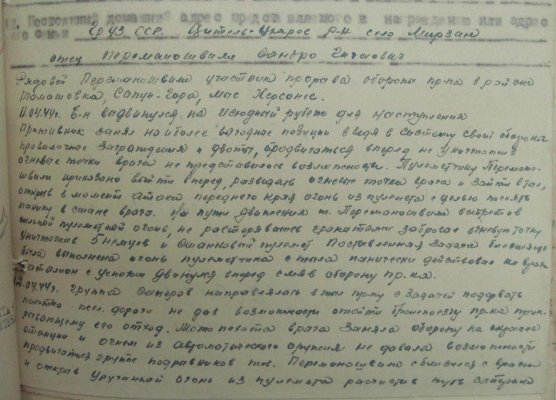 12. Постоянный домашний адрес представляемого к награждению или адрес
его семьи Груз. ССР. Цители-Цкарос р-н село Мирзан
отец Переманошвили Сандро
Рядовой Переманошвили участник прорыва обороны пр-ка в районе
Томашовка, Сапун-Гора, Мыс Херсонес.
11.04.44г. Б-н выдвинулся на исходный рубеж для наступления
Противник занял наиболее выгодные позиции введя в систему своей обороны
проволочные заграждения и дзоты, продвигаться вперед не уничтожив
огневые точки врага не представлялось возможности. Пулеметчику Перемано-
швили приказано выйти вперед, разведать огневые точки врага и зайти в тыл,
открыв в момент атаки переднего края огонь из пулемета с целью посеять
панику в стане врага. На пути движения т. Переманошвили встретил
сильный пулеметный огонь, не растерявшись гранатами забросал огневую точку
уничтожив 5 немцев и станковый пулемет Поставленная задача
была выполнена огонь пулеметчика с тыла панически действовал на врага
батальон с успехом двинулся вперед смяв оборону пр-ка.
.04.44г. группа саперов направлялась в тыл пр-ку с задачей подорвать
полотно жел. дороги не дав возможности отойти бронепоезду пр-ка прик-
рывающему его отход. Мотопехота врага заняла оборону на окраине
станции и огнем из автоматического оружия не давала возможности
продвигаться группе подрывников тов. Переманошвили сблизился с врагом
и открыв ураганный огонь из пулемета расчистив путь саперам